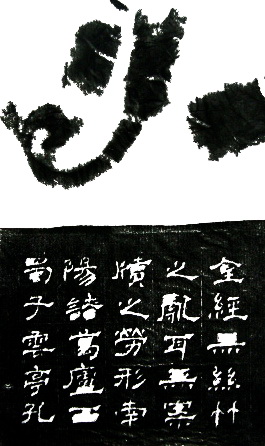 金經無絲竹
之亂耳無案
牘之勞形南
陽諸葛廬西
蜀子雲亭孔